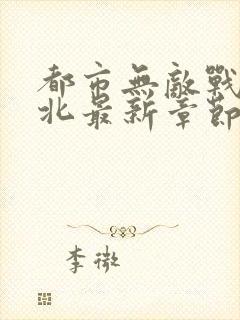 都市無敵戰
北最新章節
李微